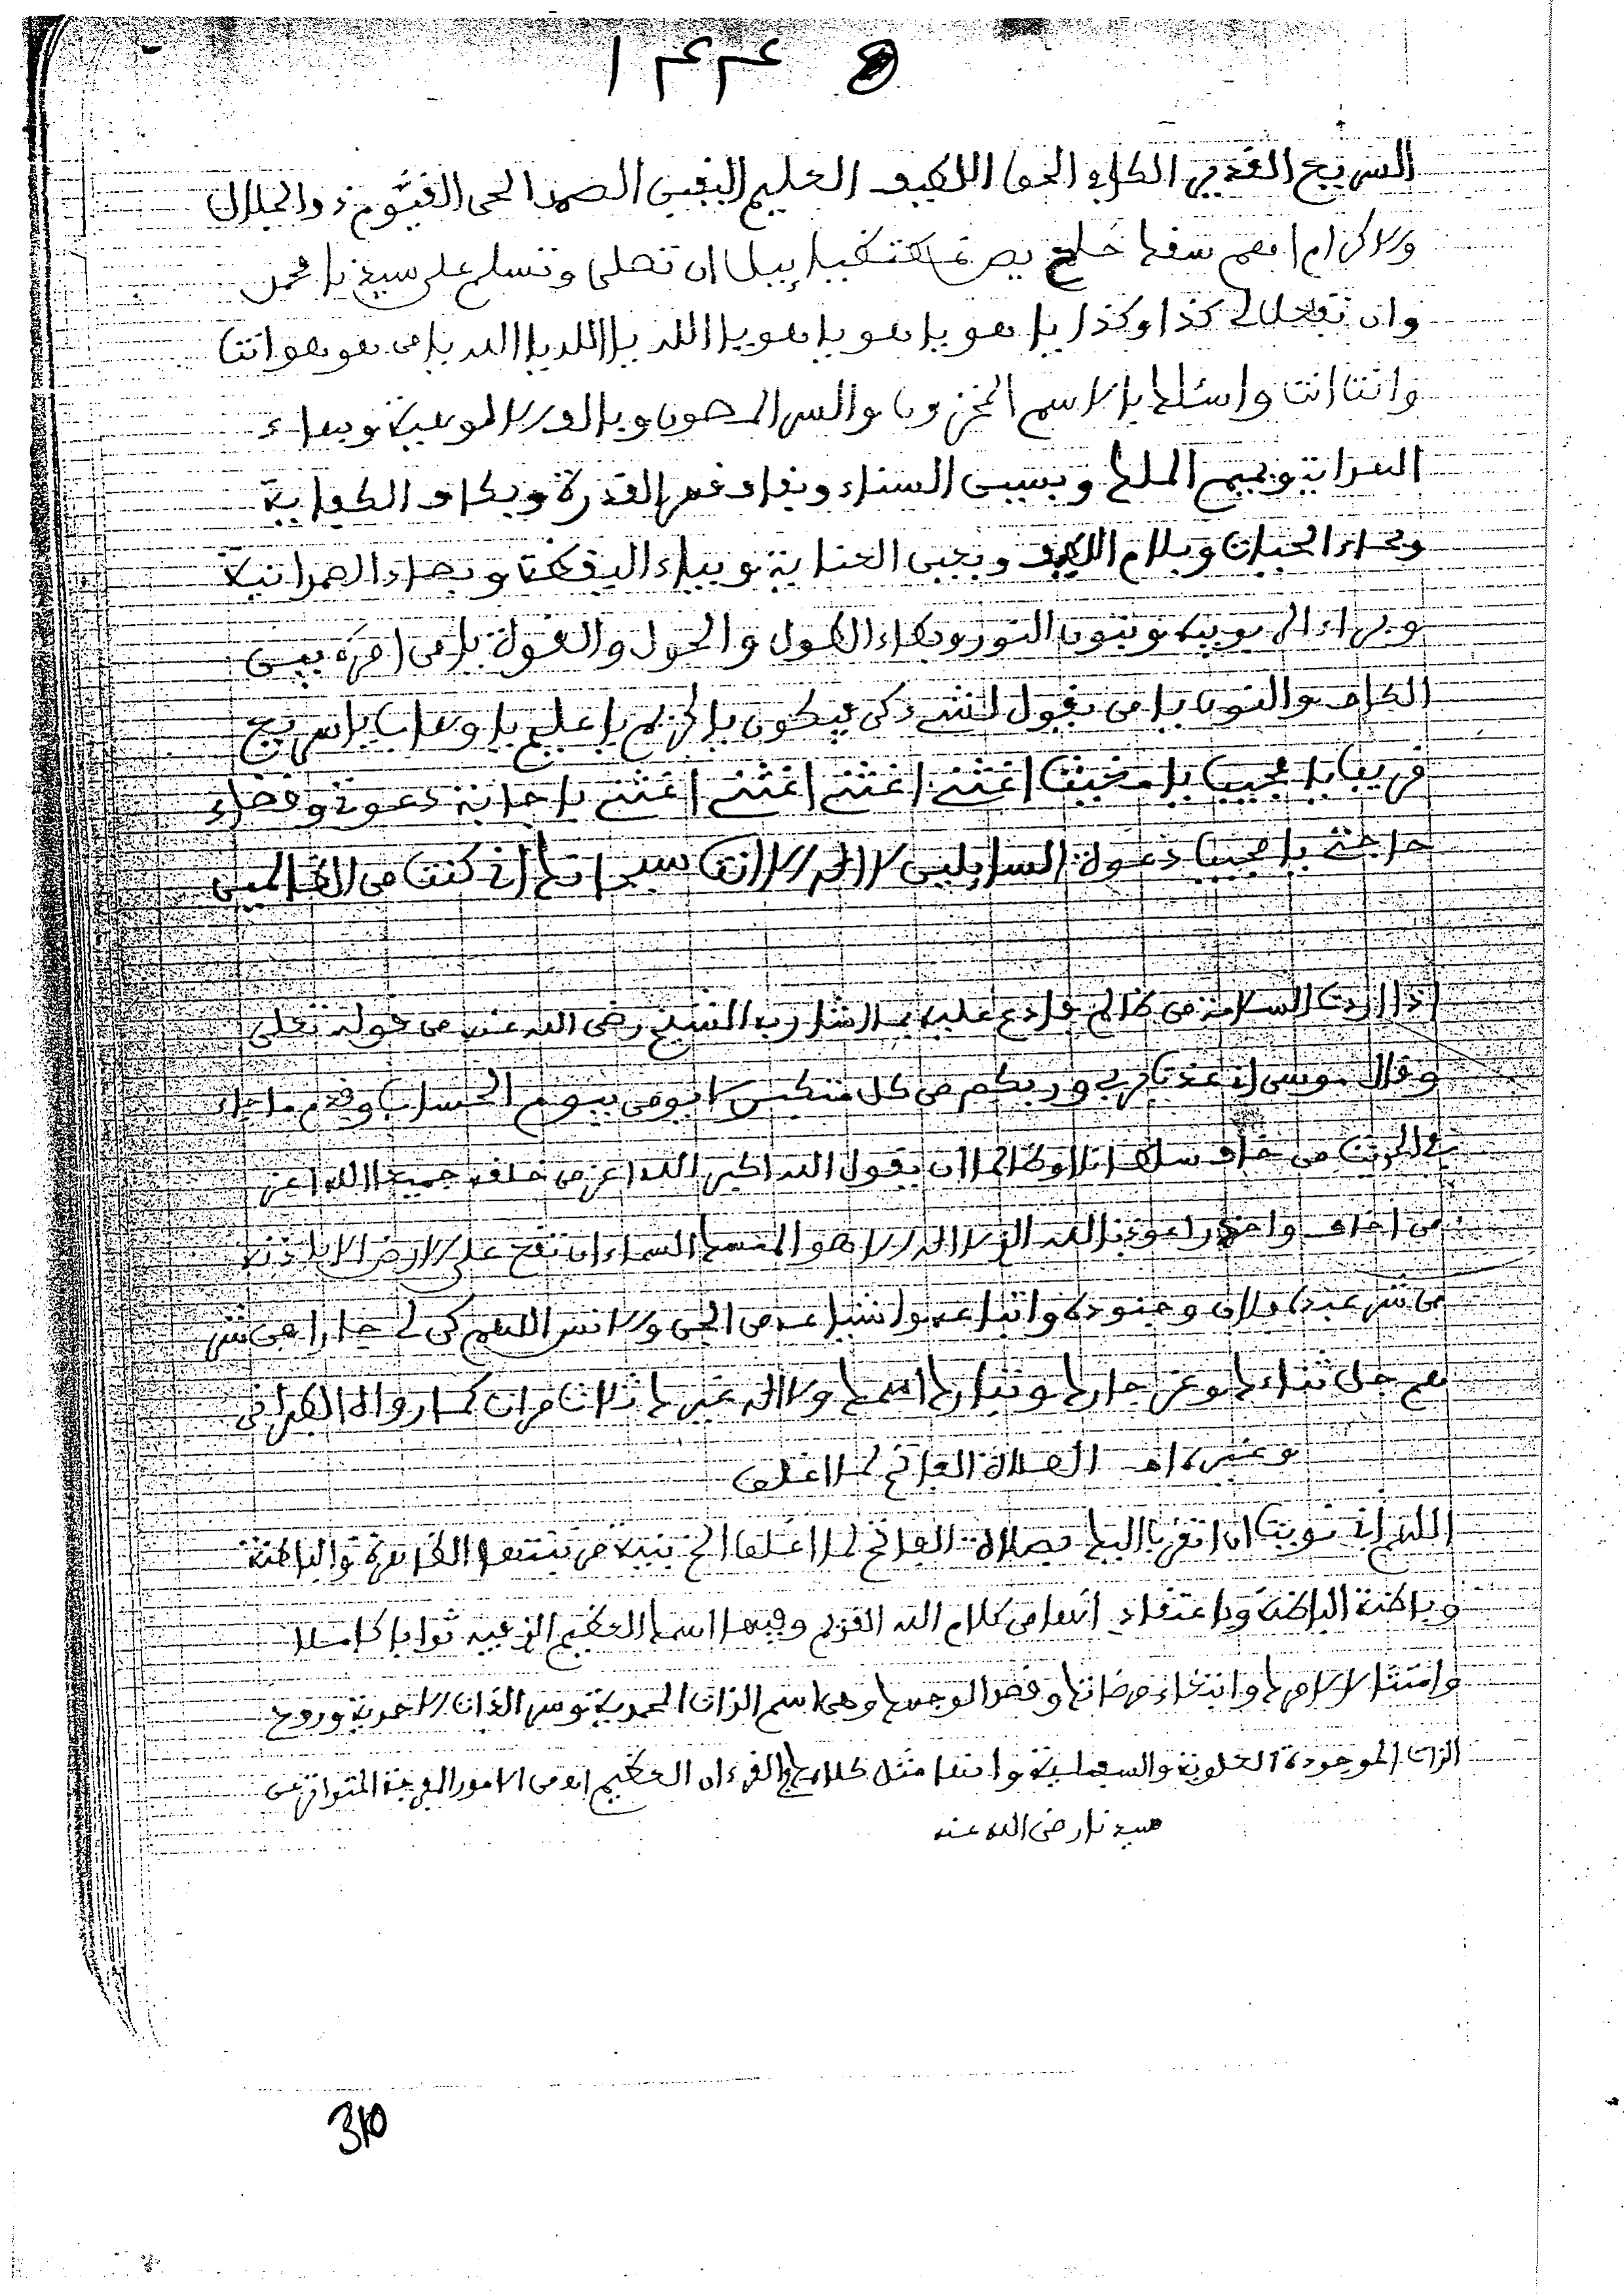 السريع القديم الكافي الحق اللطيف العليم اليقين الصمد الحي القيوم ذو الجلال
والاكرام اهم سقك حلع يص ان تصلي وتسلم على سيدنا محمد
وان تفعل لي كذا وكذا يا هو يا هو يا هو يا الله يا الله يا الله يا من هو هو انت
وانت انت واسئلك بالاسم المخزون والسر المصون وبالف الالوهية وبهاء
الهداية وبميم الملك وبسين السناء وبقاف قهر القدرة وبكاف الكفاية
وبلام اللطف وبعين العناية وبياء اليقظة وبصاد الصمدانية
وبراء الربوبية وبنون النور وبطاء الطول والحول والقوة يا من امره بين
الكاف والنون يا من يقول لشيء كن فيكون يا كريم يا عليم يا وهاب يا سريع
قريب يا مجيب يا مغيث اغثني اغثني اغثني باجابة دعوتي وقضاء
حاجتي يا مجيب دعوة السايلين لا اله الا انت سبحانك اني كنت من الظالمين
اذا اردت السلامة من ظالم فادع عليه بما اشار به الشيخ رضي الله عنه من قوله تعلى
وقال موسى اني عذت بربي وربكم من كل متكبر لا يومن بيوم الحساب وقدم ما جاء
في الحديث من خاف سلطانا او ظالما ان يقول الله اكبر الله اعز من خلقه جميعا الله اعز
من اخاف واحذر اعوذ بالله الذي لا اله الا هو الممسك السماء ان تقع على الارض الا باذنه
من شر عبدك فلان وجنوده واتباعه واشياعه من الجن والانس اللهم كن لي جارا من شر
هم جل ثناءك وعز جارك وتبارك اسمك ولا اله غيرك ثلاث مرات كما رواه الطبراني
وغيره اهـ الصلاة الفاتح لما اغلق
اللهم اني نويت ان اتقرب اليك بصلاة الفاتح لما اغلق الخ بنية مرتبتها الظاهرة والباطنة
وباطنة الباطنة وباعتقاد انها من كلام الله القديم وفيها اسمك العظيم الذي فيه ثوابا كاملا
وامتثالا لامرك وابتغاء مرضاتك وقصدا لوجهك وهي اسم الذات المحمدية وسر الذات الاحدية وروح
الذات الموجودة العلوية والسفلية وانها مثل كلامك القرءان العظيم اهـ من الامور المتواتر عن
سيدنا رضي الله عنه
310